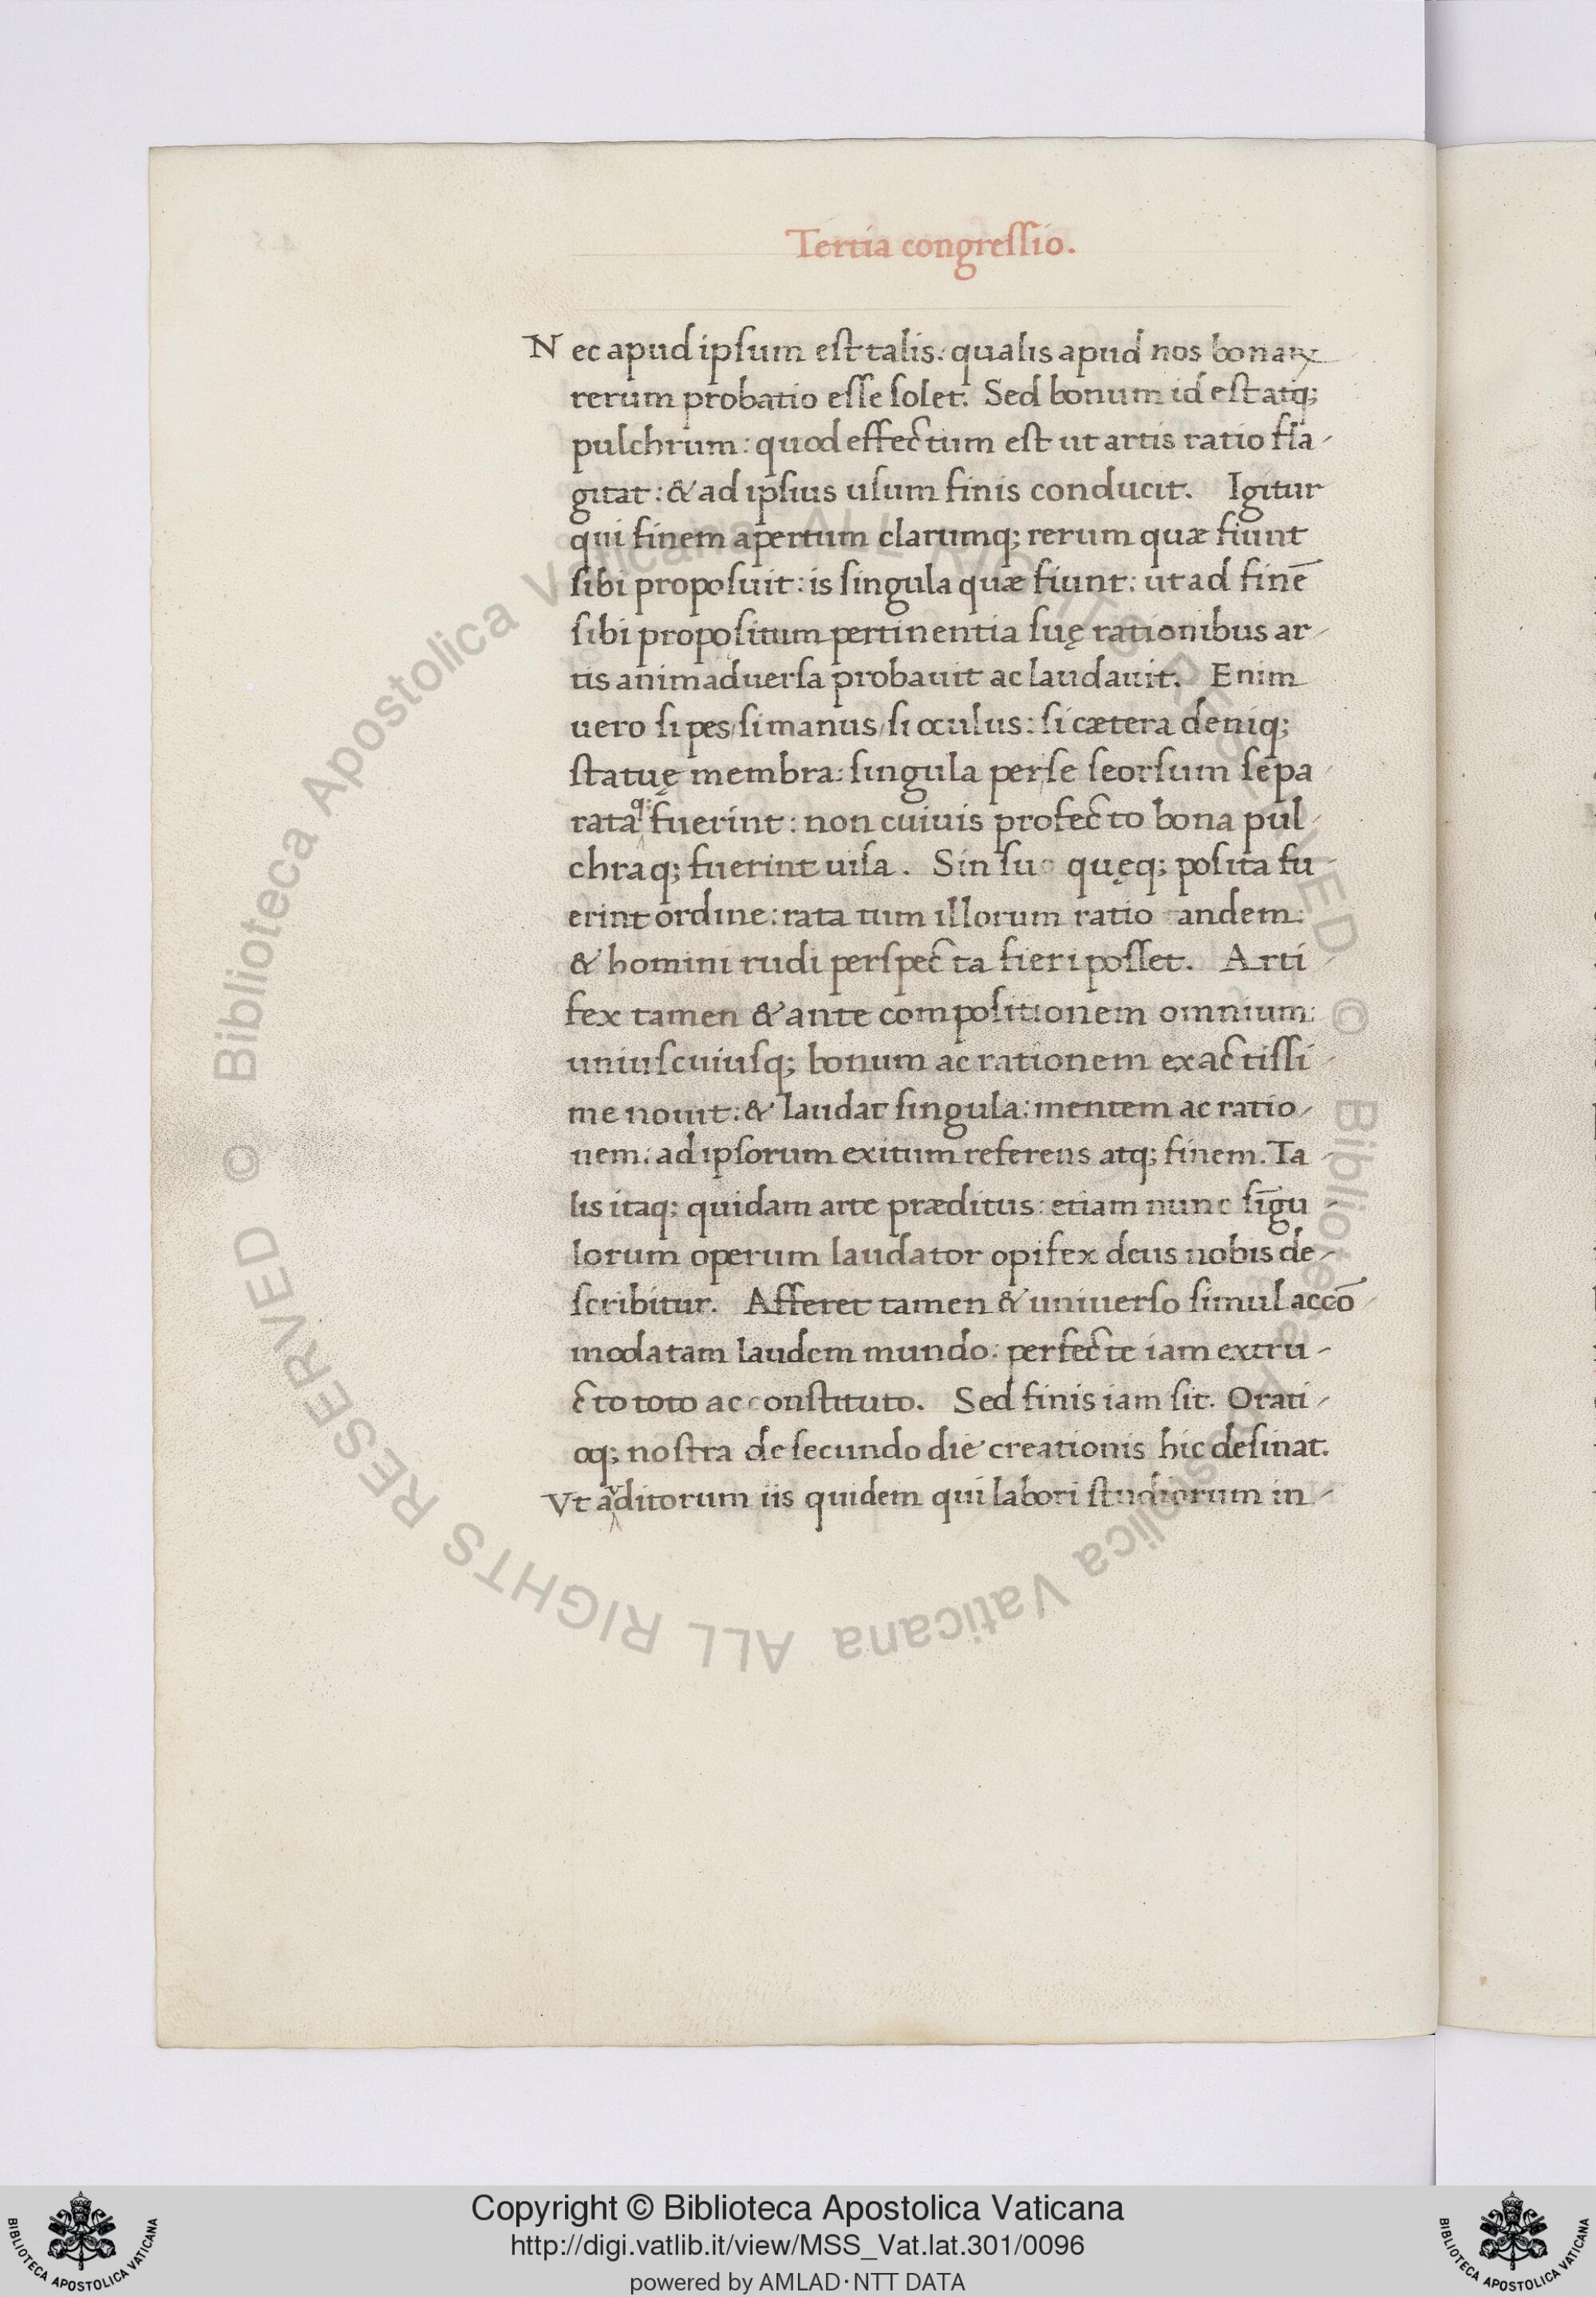 Tertia congressio.
Nec apud ipsum est talis: qualis apud nos bonaꝝ
rerum probatio esse solet. Sed bonum id est atq;
pulchrum: quod effectum est ut artis ratio fla-
gitat: & ad ipsius usum finis conducit. Igitur
qui finem apertum clarumq; rerum quæ fiunt
sibi proposuit: is singula quæ fiunt: ut ad finē
sibi propositum pertinentia suę rationibus ar-
tis animaduersa probauit ac laudauit. Enim
uero si pes/si manus/si oculus: si cætera deniq;
statuę membra: singula per se seorsum sepa-
rataq; fuerint: non cuiuis profecto bona pul-
chraq; fuerint uisa. Sin suo quęq; posita fu-
erint ordine: rata tum illorum ratio tandem:
& homini rudi perspecta fieri posset. Arti-
fex tamen & ante compositionem omnium:
uniuscuiusq; bonum ac rationem exactissi-
me nouit: & laudat singula: mentem ac ratio-
nem: ad ipsorum exitum referens atq; finem. Ta-
lis itaq; quidam arte præditus: etiam nunc sīgu-
lorum operum laudator opifex deus nobis de-
scribitur. Afferet tamen & uniuerso simul accō-
modatam laudem mundo: perfecte iam extru-
cto toto ac constituto. Sed finis iam sit. Orati-
oq; nostra de secundo die creationis hic desinat.
Vt auditorum iis quidem qui labori studiorum in-
© Biblioteca Apostolica Vaticana ALL RIGHTS RESERVED
© Biblioteca Apostolica Vaticana ALL RIGHTS RESERVED
Copyright © Biblioteca Apostolica Vaticana
http://digi.vatlib.it/view/MSS_Vat.lat.301/0096
powered by AMLAD·NTT DATA
BIBLIOTECA APOSTOLICA VATICANA
BIBLIOTECA APOSTOLICA VATICANA